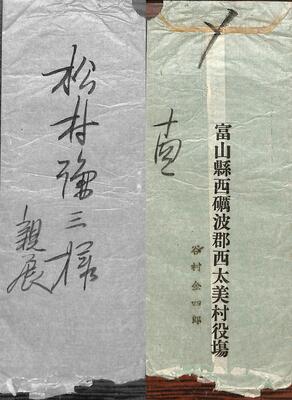 松村弥三様
親展
富山縣西礪波郡西太美村役塲
谷村金四郎